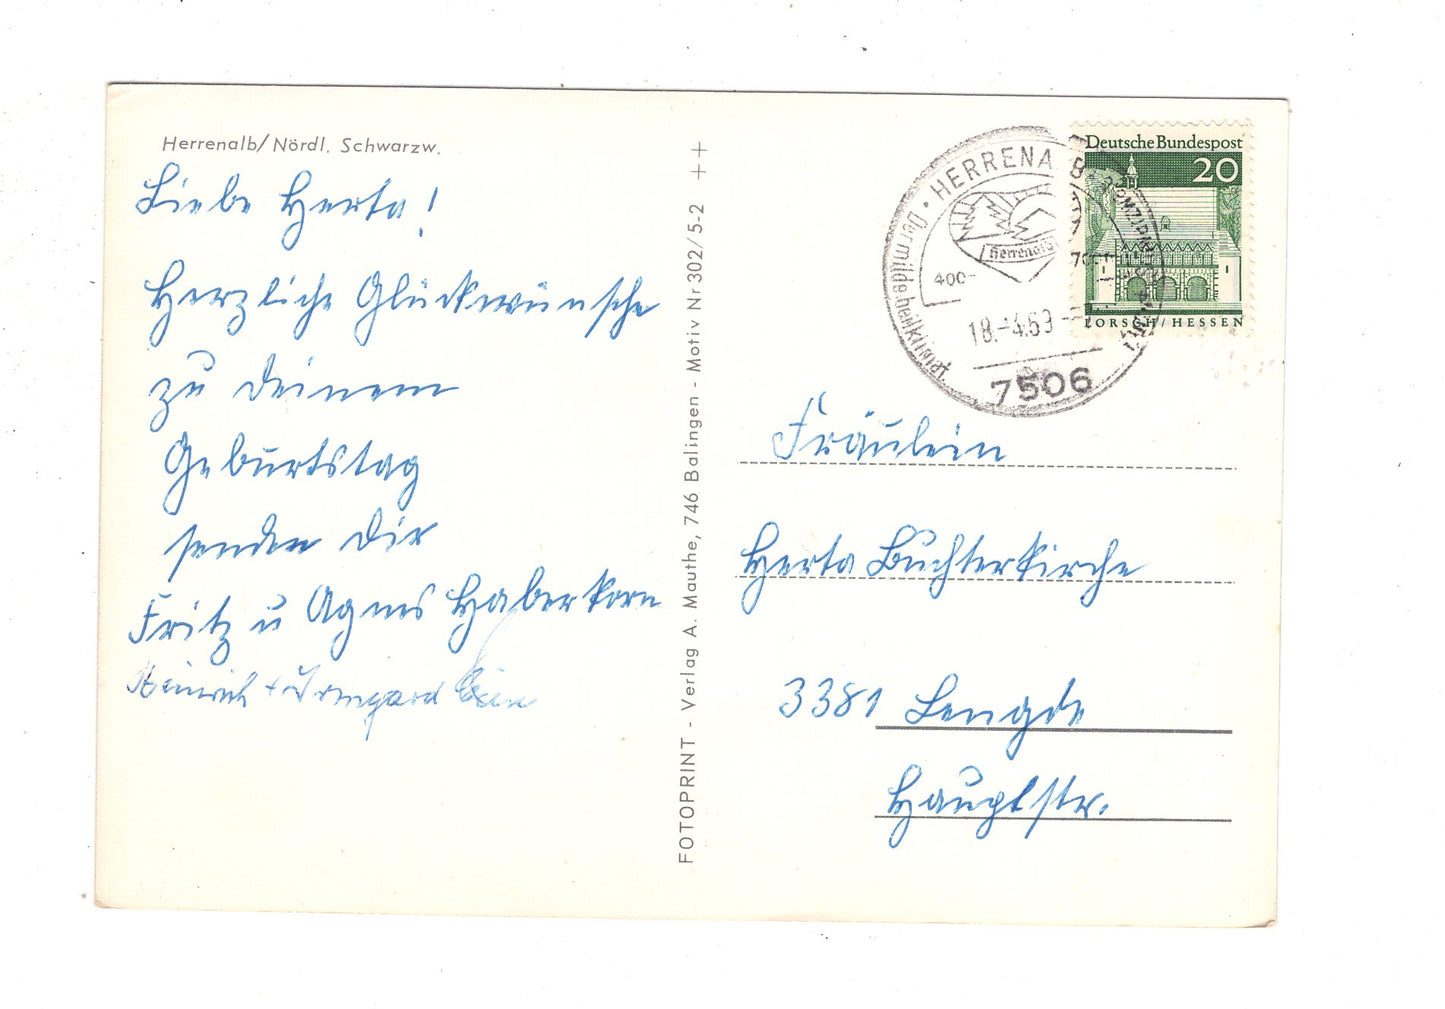 Herrenalb/Nördl. Schwarzw.
Liebe Herta!
Herzliche Glückwünsche
zu deinem
Geburtstag
senden dir
Fritz u Agnes Haberkorn
Heinrich + Irmgard
FOTOPRINT - Verlag A. Mauthe, 746 Balingen - Motiv Nr 302/5-2 ++
HERRENALB
Der milde heilklimat.
Herrenalb
400-
18.-4.69
7506
Deutsche Bundespost
20
LORSCH/HESSEN
Fräulein
Herta Buchterkirche
3381 Lengde
Hauptstr.